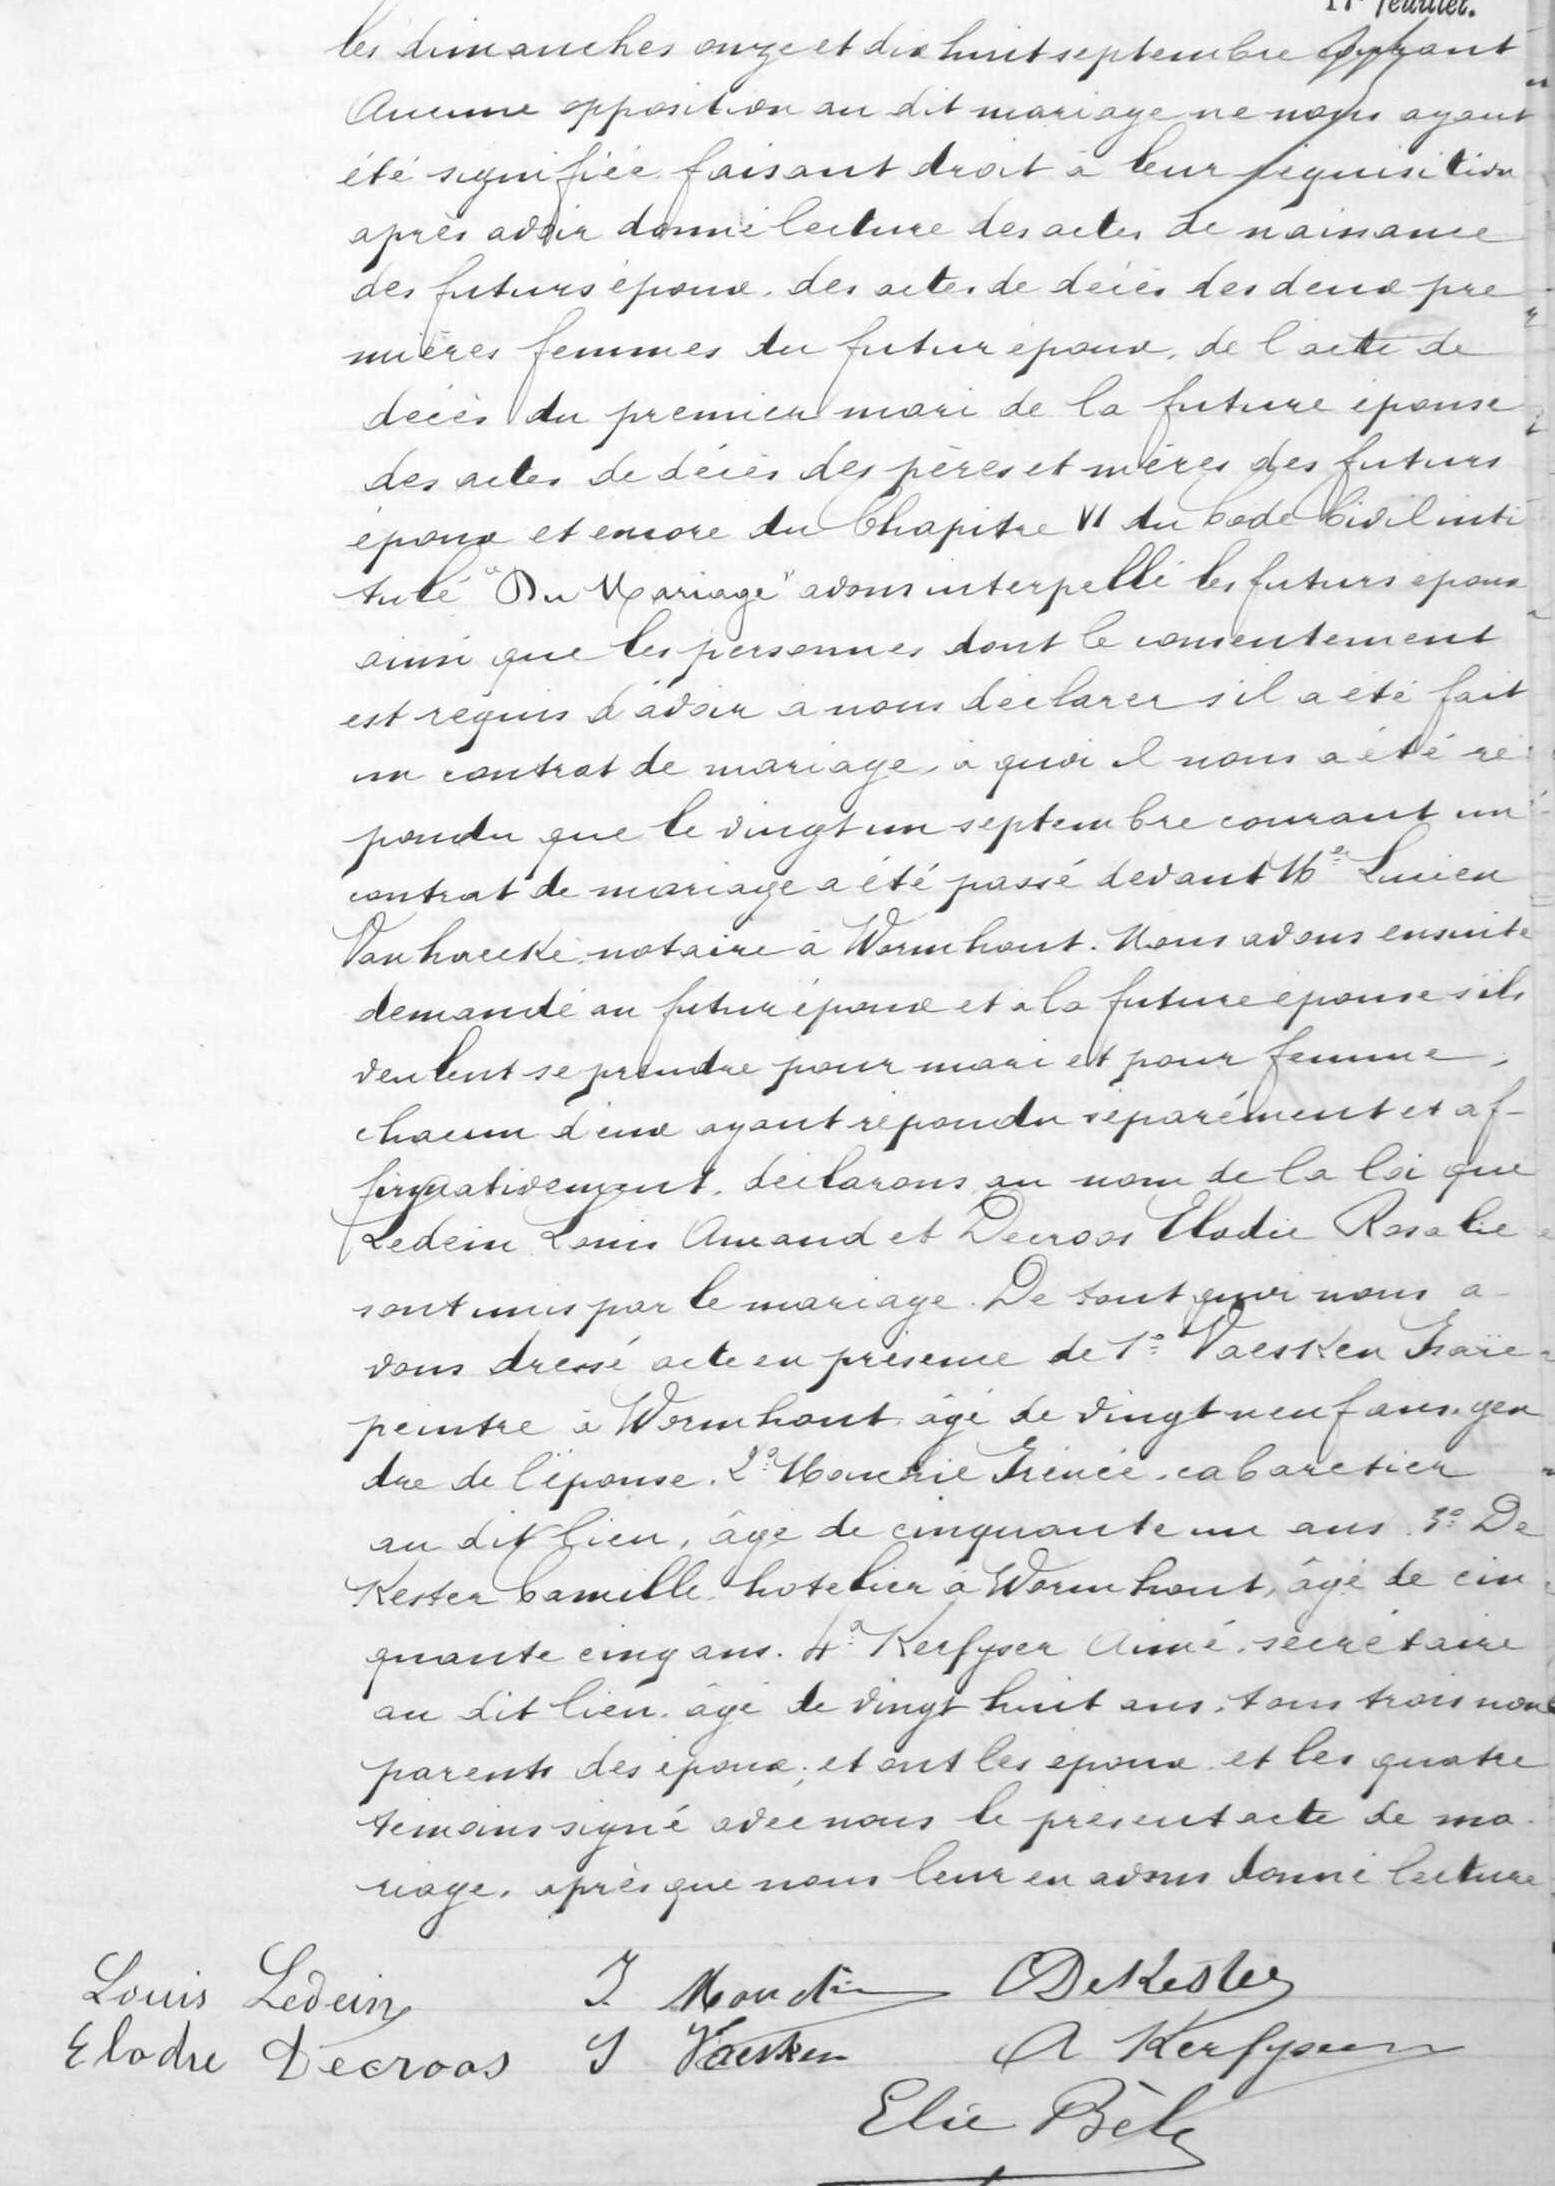 11 février.
les dimanches onze et dix huit septembre courant
Aucune opposition au dit mariage ne nous ayant
été signifiée, faisant droit à leur réquisition
après avoir donné lecture des actes de naissance
des futurs époux, des actes de décès des deux pre
mières femmes du futur époux, de l'acte de
décès du premier mari de la future épouse
des actes de décès des pères et mères des futurs
époux et encore du Chapitre VI du Code Civil inti
tulé "Du Mariage" avons interpellé les futurs époux
ainsi que les personnes dont le consentement
est requis d'avoir à nous déclarer s'il a été fait
un contrat de mariage, à quoi il nous a été ré
pondu que le vingt un septembre courant un
contrat de mariage a été passé devant Me Lucien
Vanhaecke, notaire à Wormhout. Nous avons ensuite
demandé au futur époux et à la future épouse s'ils
veulent se prendre pour mari et pour femme,
chacun d'eux ayant répondu séparément et af-
firmativement, déclarons au nom de la loi que
Ledein Louis Amand et Decroos Elodie Rosalie
sont unis par le mariage. De tout quoi nous a-
vons dressé acte en présence de 1o Vaesken Isaïe
peintre à Wormhout, âgé de vingt neuf ans, gen
dre de l'épouse. 2o Irénée, cabaretier
au dit lieu, âgé de cinquante un ans. 3o De
Kester Camille, hotelier à Wormhout, âgé de cin
quante cinq ans. 4o Kerfyser Aimé, secrétaire
au dit lieu, âgé de vingt huit ans, tous trois non
parents des époux; et ont les époux et les quatre
témoins signé avec nous le présent acte de ma-
riage, après que nous leur en avons donné lecture
Louis Ledein I. DeKester
Elodie Decroos I Vaesken A Kerfyser
Elie Bèle